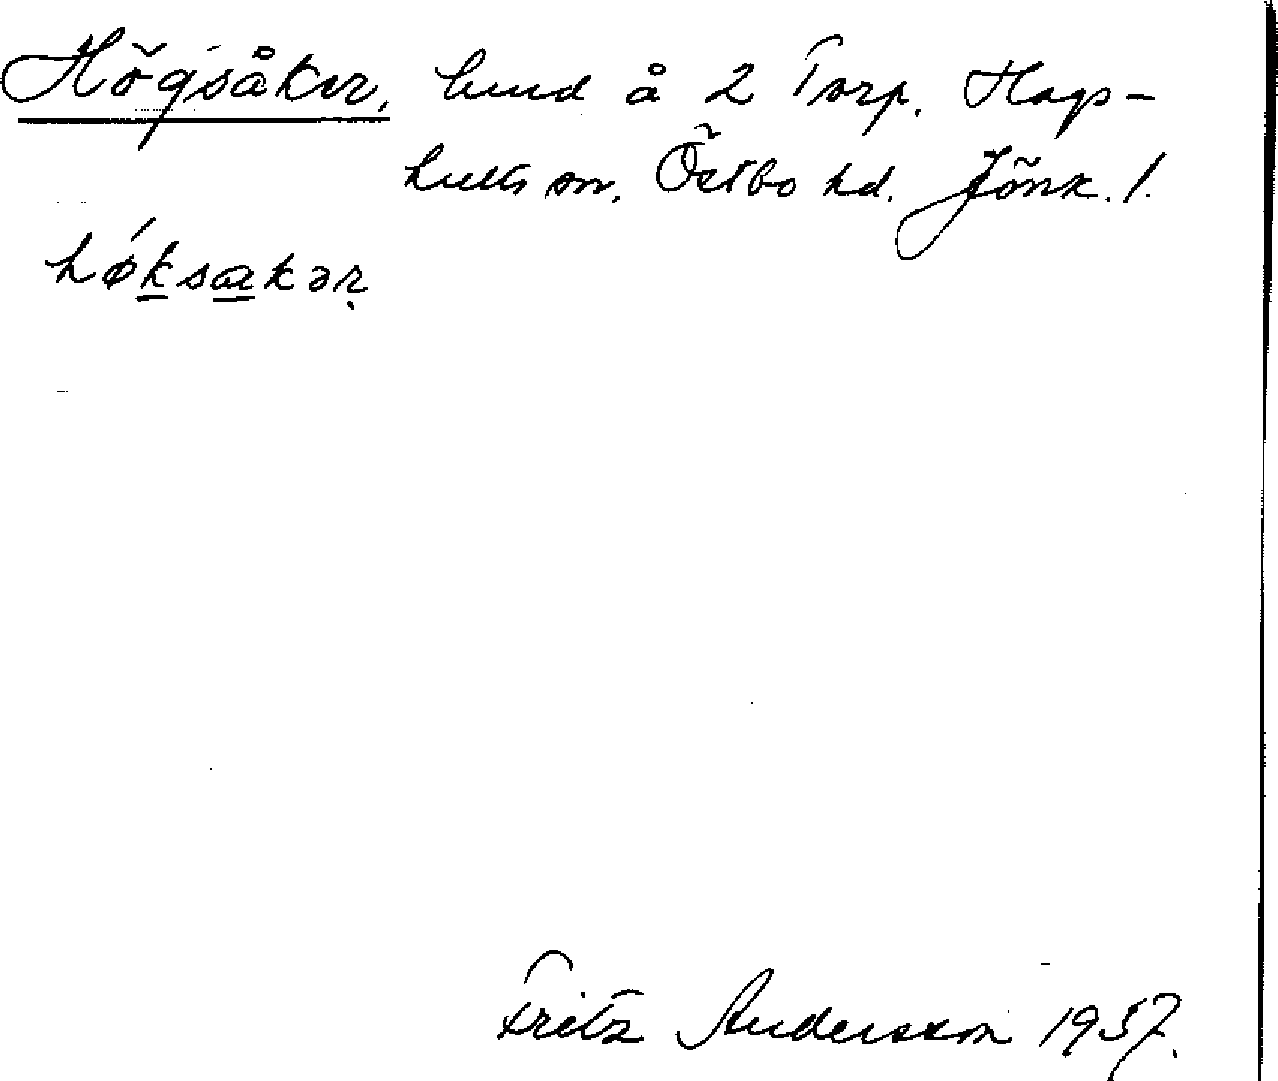 Högsåker, lund å 2 Torp. Hags-
hults sn. Östbo hd. Jönk. l.
hǿksakər
Fritz Andersson 1957.